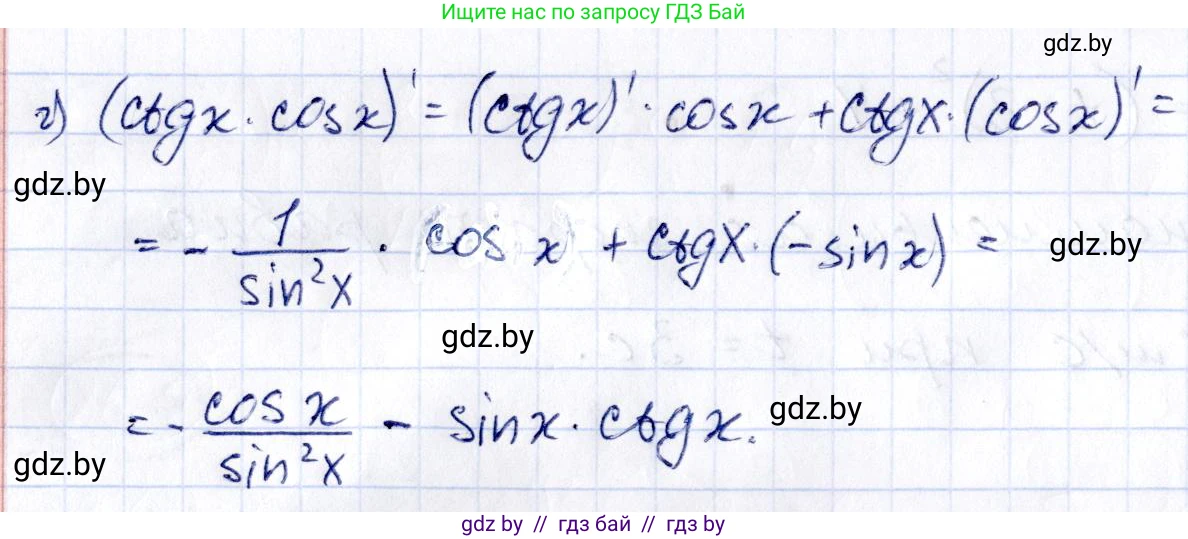 Ищите нас по запросу ГДЗ Бай
gdz.by
г) (ctgx · cosx)' = (ctgx)' · cosx + ctgx · (cosx)' =
gdz.by
= - 1/sin²x · cos x + ctgx · (-sinx) =
gdz.by
gdz.by
= - cosx/sin²x - sinx · ctgx.
gdz.by
gdz.by
gdz by // гдз бай // гдз by